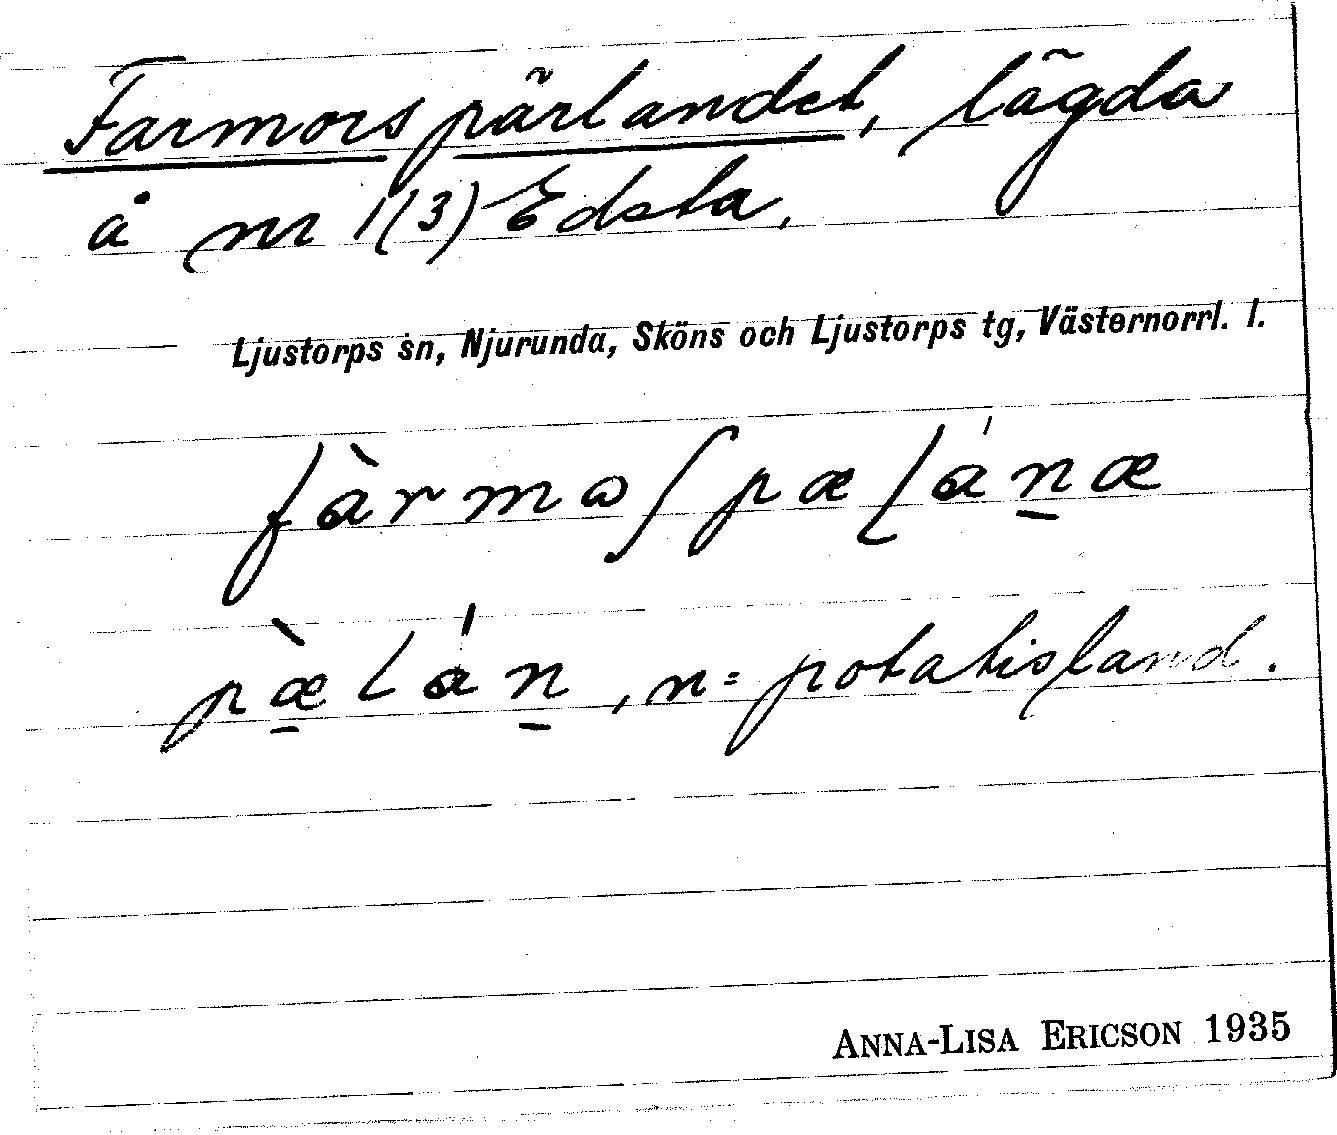 Farmorspärlandet, lägda
å nr 1(3) Edsta.
Ljustorps sn, Njurunda, Sköns och Ljustorps tg, Västernorrl. l.
fàrmɷʃpæɭánæ
pæ̀lán, n = potatisland.
ANNA-LISA ERICSON 1935